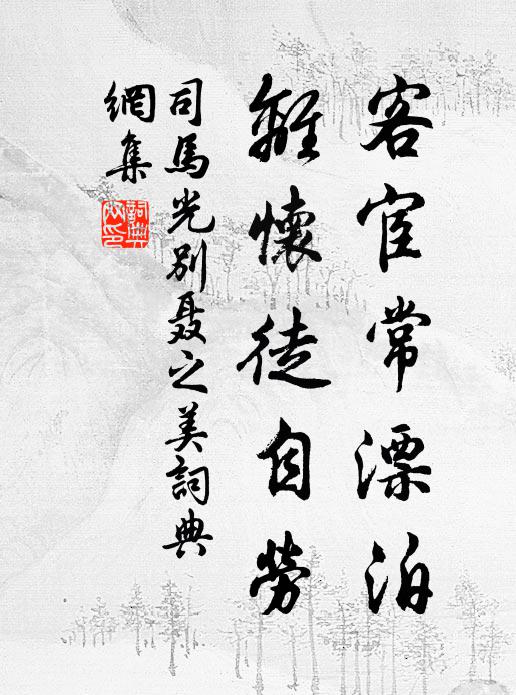 客宦常漂泊
離懷徒自勞
司馬光別聶之美詞典
網集
詞典
网印